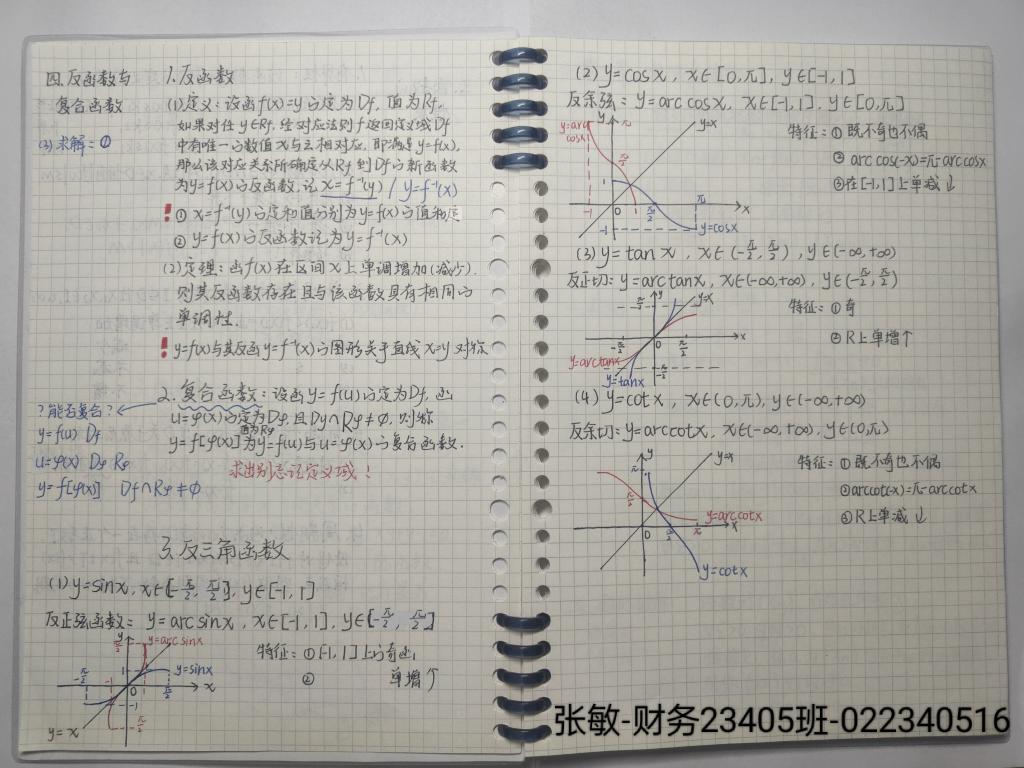 四.反函数与
复合函数
(3)求解:①
1.反函数
(1)定义:设函f(x)=y的定为Df,值为Rf,
如果对任y∈Rf,经对应法则f返回定义域Df
中有唯一的数值x与之相对应,即满足y=f(x),
那么该对应关系所确定从Rf到Df的新函数
为y=f(x)的反函数,记x=f⁻¹(y) / y=f⁻¹(x)
! ① x=f⁻¹(y)的定和值分别为y=f(x)的值和定
② y=f(x)的反函数记为y=f⁻¹(x)
(2)定理:函f(x)在区间X上单调增加(减少).
则其反函数存在且与该函数具有相同的
单调性.
! y=f(x)与其反函y=f⁻¹(x)的图形关于直线x=y对称
2.复合函数:设函y=f(u)的定为Df,函
u=φ(x)的定为Dφ,且Dφ∩Rφ≠∅,则称
值为Rφ
y=f[φ(x)]为y=f(u)与u=φ(x)的复合函数.
求出别忘记定义域!
?能否复合?
y=f(u) Df
u=φ(x) Dφ Rφ
y=f[φ(x)] Df∩Rφ≠∅
3.反三角函数
(1)y=sinx,x∈[-π/2,π/2],y∈[-1,1]
反正弦函数:y=arcsinx,x∈[-1,1],y∈[-π/2,π/2]
特征:①[-1,1]上的奇函
② 单增↑
y
y=arcsinx
π/2
1
y=sinx
-π/2
-1
0
1
π/2
x
-1
-π/2
y=x
(2)y=cosx,x∈[0,π],y∈[-1,1]
反余弦:y=arccosx,x∈[-1,1],y∈[0,π]
特征:①既不奇也不偶
②arccos(-x)=π-arccosx
③在[-1,1]上单减↓
y=arc
cosx
y
π
y=x
π/2
1
-1
0
π/2
π
x
-1
y=cosx
(3)y=tanx,x∈(-π/2,π/2),y∈(-∞,+∞)
反正切:y=arctanx,x∈(-∞,+∞),y∈(-π/2,π/2)
特征:①奇
②R上单增↑
y
y=x
π/2
-π/2
0
π/2
x
y=arctanx
-π/2
y=tanx
(4)y=cotx,x∈(0,π),y∈(-∞,+∞)
反余切:y=arccotx,x∈(-∞,+∞),y∈(0,π)
特征:①既不奇也不偶
②arccot(-x)=π-arccotx
③R上单减↓
y
π
y=x
π/2
y=arccotx
0
π/2
π
x
y=cotx
张敏-财务23405班-022340516